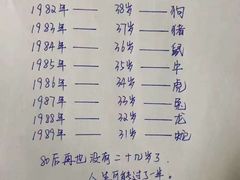 1982年——38岁—狗
1983年——37岁—猪
1984年——36岁—鼠
1985年——35岁—牛
1986年——34岁—虎
1987年——33岁—兔
1988年——32岁—龙
1989年——31岁—蛇
80后再也没有二十几岁了，
人生可能过了一半。